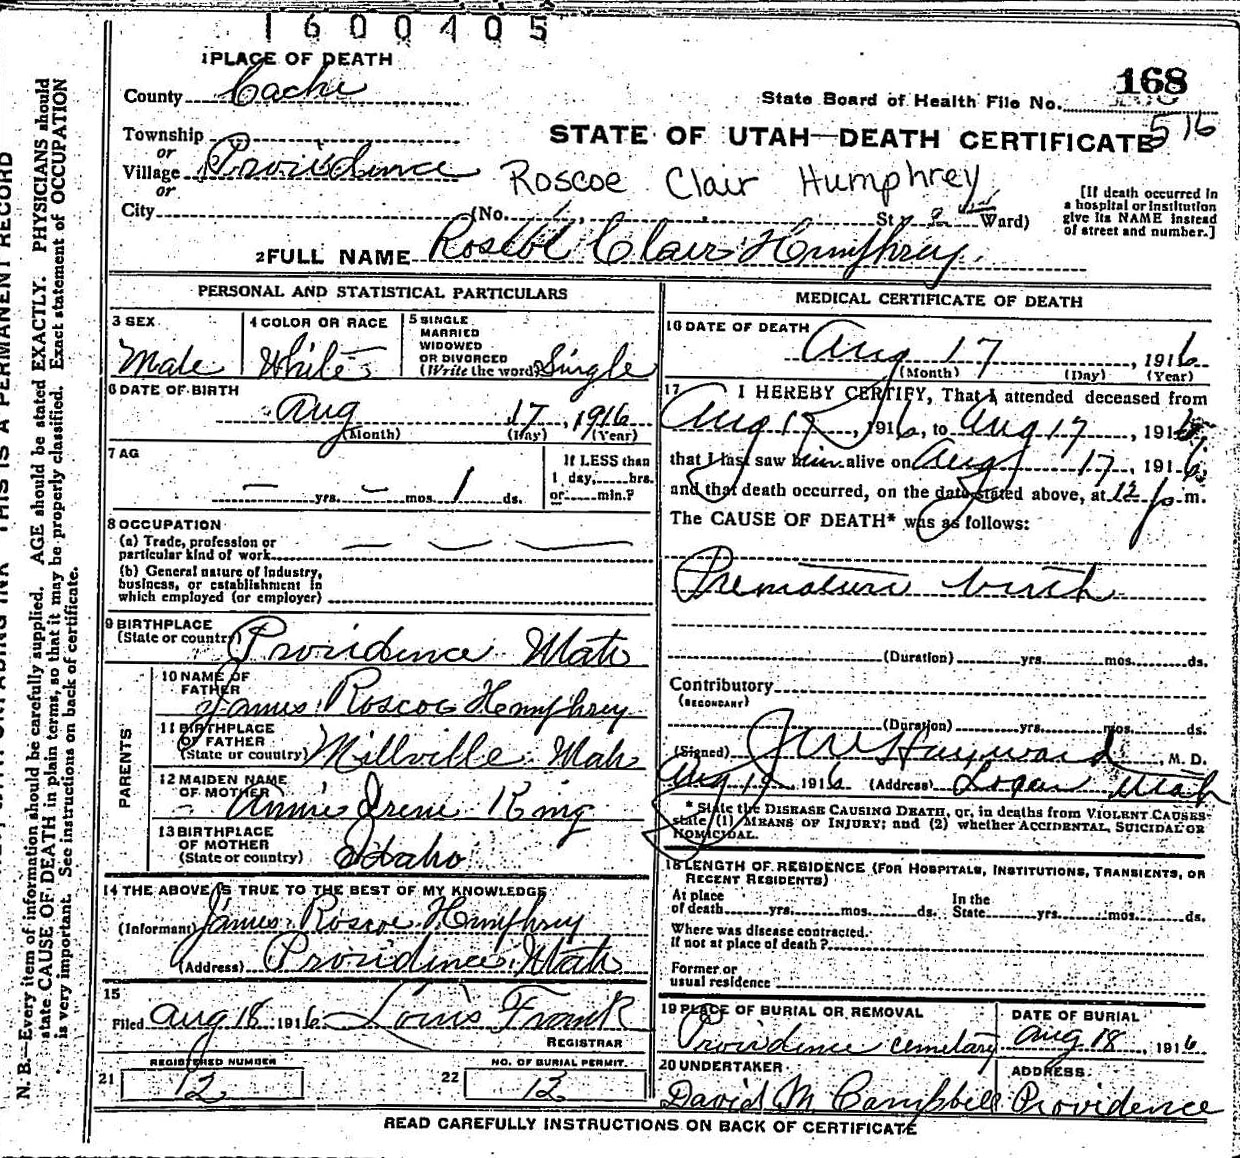 1600405
1 PLACE OF DEATH
168
County Cache
State Board of Health File No.
516
Township
STATE OF UTAH—DEATH CERTIFICATE
or
Village Providence
Roscoe Clair Humphrey
or
City (No. St. 2 Ward)
[If death occurred in
a hospital or institution
give its NAME instead
of street and number.]
2 FULL NAME Roscoe Clair Humphrey.
PERSONAL AND STATISTICAL PARTICULARS
3 SEX Male
4 COLOR OR RACE White
5 SINGLE
MARRIED
WIDOWED
OR DIVORCED
(Write the word) Single
6 DATE OF BIRTH
Aug 17, 1916
(Month) (Day) (Year)
7 AG
— yrs. — mos. 1 ds.
If LESS than
1 day,......hrs.
or......min.?
8 OCCUPATION
(a) Trade, profession or
particular kind of work — — —
(b) General nature of industry,
business, or establishment in
which employed (or employer)
9 BIRTHPLACE
(State or country) Providence Utah
PARENTS
10 NAME OF
FATHER James Roscoe Humphrey
11 BIRTHPLACE
OF FATHER
(State or country) Millville Utah
12 MAIDEN NAME
OF MOTHER Annie Irene King
13 BIRTHPLACE
OF MOTHER
(State or country) Idaho
14 THE ABOVE IS TRUE TO THE BEST OF MY KNOWLEDGE
(Informant) James Roscoe Humphrey
(Address) Providence Utah
15
Filed Aug 18 1916 Louis Frank
REGISTRAR
REGISTERED NUMBER
21 12
NO. OF BURIAL PERMIT.
22 12
MEDICAL CERTIFICATE OF DEATH
16 DATE OF DEATH
Aug 17, 1916
(Month) (Day) (Year)
17 I HEREBY CERTIFY, That I attended deceased from
Aug 17, 1916, to Aug 17, 1916,
that I last saw him alive on Aug 17, 1916,
and that death occurred, on the date stated above, at 12 p m.
The CAUSE OF DEATH* was as follows:
Premature birth
(Duration) yrs. mos. ds.
Contributory
(SECONDARY)
(Duration) yrs. mos. ds.
(Signed) J W Hayward, M. D.
Aug 1916 (Address) Logan Utah
* State the DISEASE CAUSING DEATH, or, in deaths from VIOLENT CAUSES
state (1) MEANS OF INJURY; and (2) whether ACCIDENTAL, SUICIDAL OR
HOMICIDAL.
18 LENGTH OF RESIDENCE (FOR HOSPITALS, INSTITUTIONS, TRANSIENTS, OR
RECENT RESIDENTS)
At place
of death yrs. mos. ds.
In the
State yrs. mos. ds.
Where was disease contracted.
If not at place of death?
Former or
usual residence
19 PLACE OF BURIAL OR REMOVAL
Providence cemetary
DATE OF BURIAL
Aug 18, 1916
20 UNDERTAKER
David M. Campbell
ADDRESS
Providence
READ CAREFULLY INSTRUCTIONS ON BACK OF CERTIFICATE
THIS IS A PERMANENT RECORD
N. B.—Every item of information should be carefully supplied. AGE should be stated EXACTLY. PHYSICIANS should
state CAUSE OF DEATH in plain terms, so that it may be properly classified. Exact statement of OCCUPATION
is very important. See instructions on back of certificate.